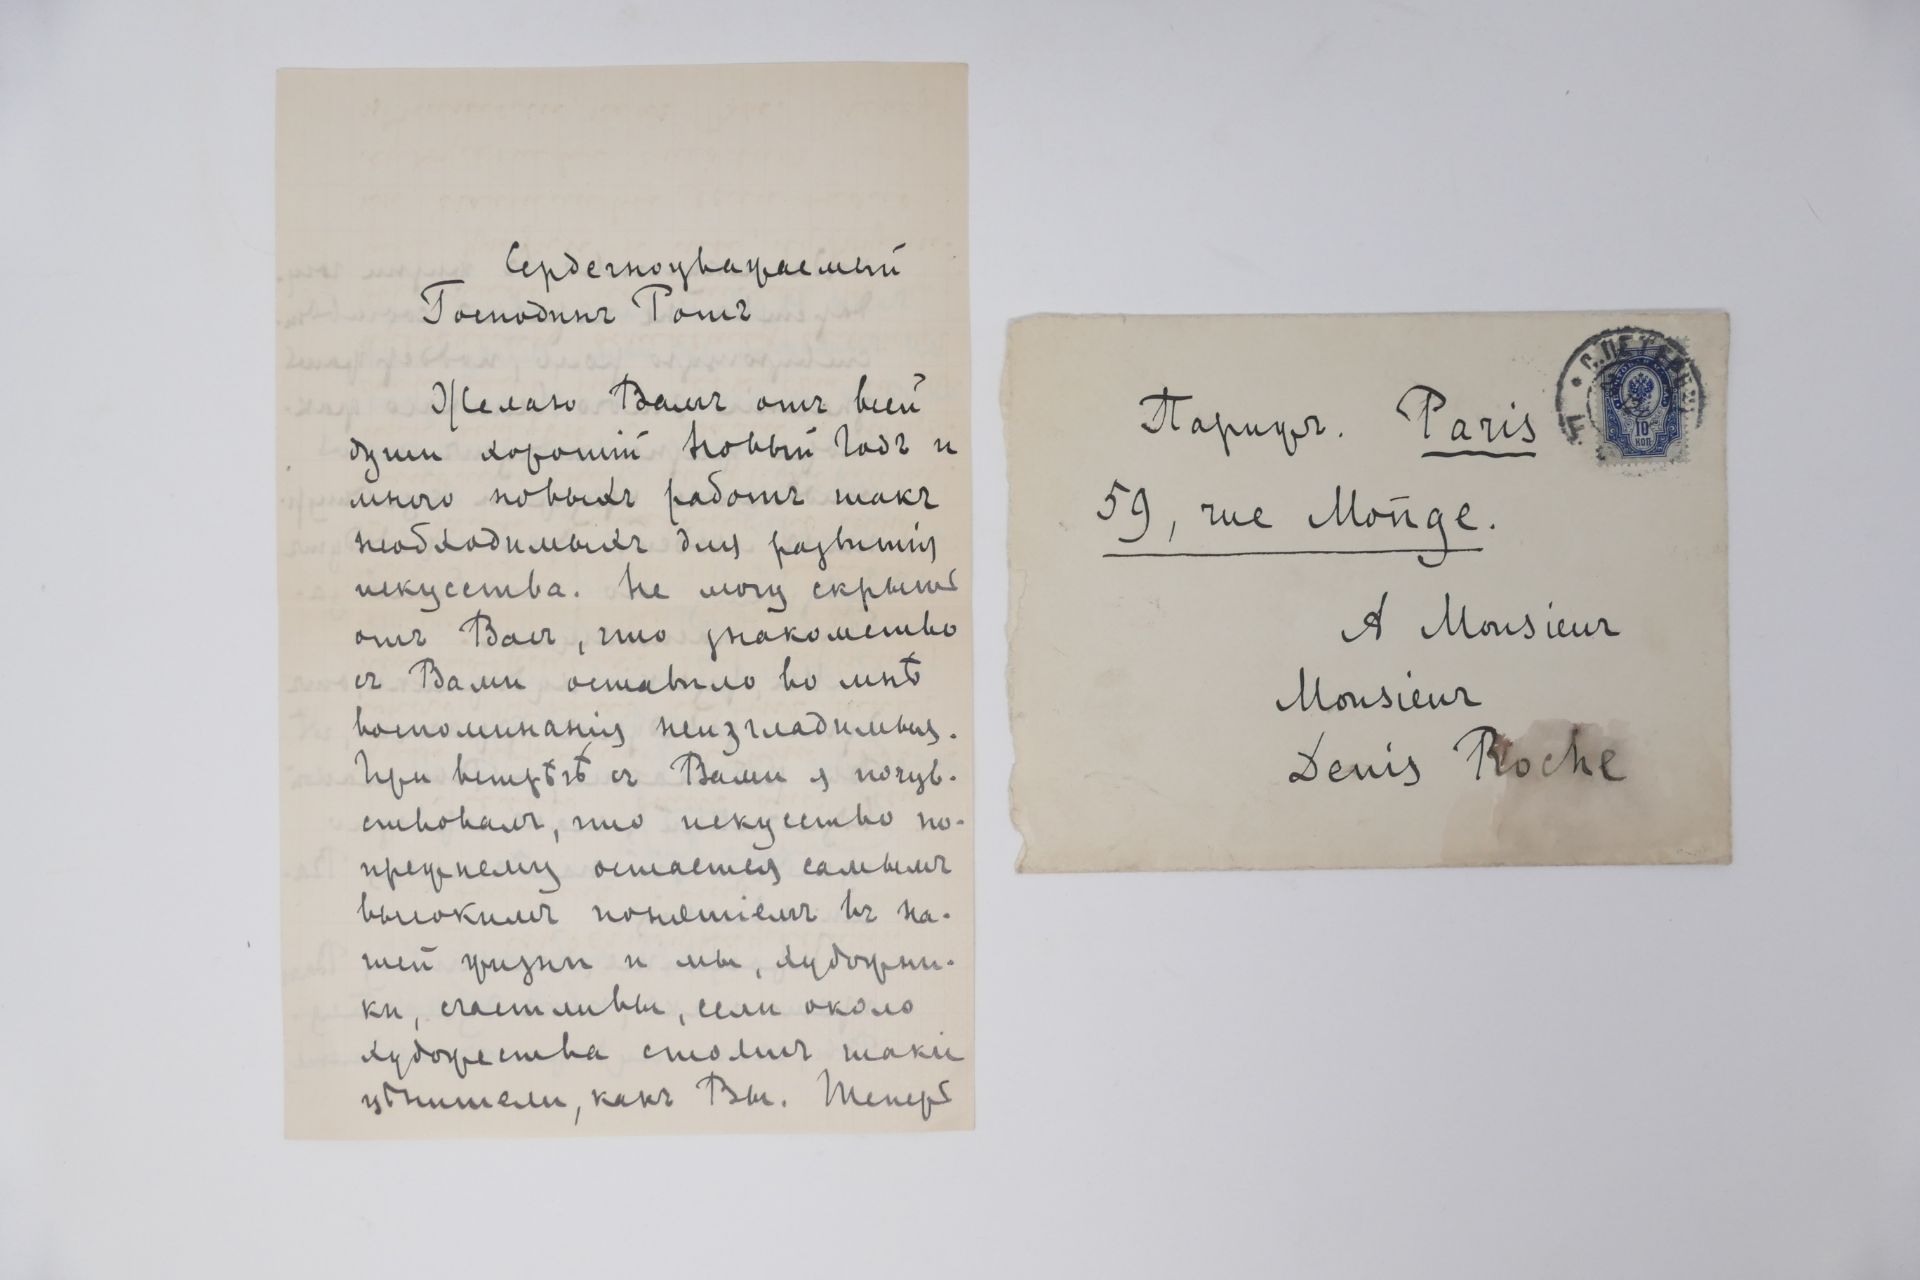 Сердечноуважаемый
Господинъ Рошъ
Желаю Вамъ отъ всей
души хорошій Новый Годъ и
много новыхъ работъ такъ
необходимыхъ для развитія
искусства. Не могу скрыть
отъ Васъ, что знакомство
съ Вами оставило во мнѣ
воспоминанія неизгладимыя.
При встрѣчѣ съ Вами я почув-
ствовалъ, что искусство по-
прежнему остается самымъ
высокимъ понятіемъ въ на-
шей жизни и мы, художни-
ки, счастливы, если около
художества стоятъ такіе
цѣнители, какъ Вы. Теперь
Парижъ. Paris
59, rue Monge.
A Monsieur
Monsieur
Denis Roche
С.ПЕТЕРБ
10
КОП